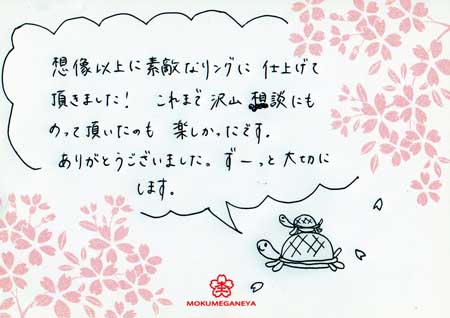 想像以上に素敵なリングに仕上げて
頂きました！ これまで沢山 相談にも
のって頂いたのも 楽しかったです。
ありがとうございました。ずーっと大切に
します。
MOKUMEGANEYA